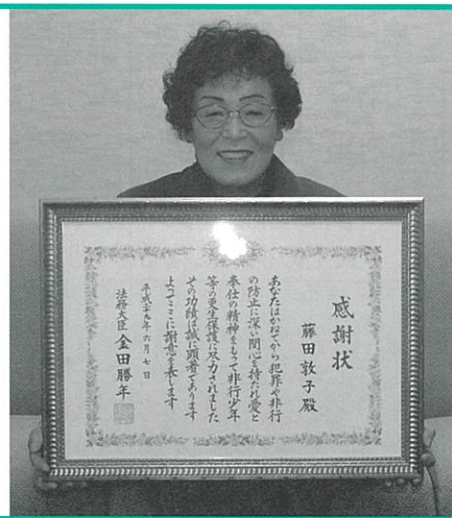 感謝状
藤田敦子殿
あなたはかねてから犯罪や非行
の防止に深い関心を持たれ愛と
奉仕の精神をもって非行少年
等の更生保護に尽力されました
その功績は誠に顕著であります
よってここに謝意を表します
平成二十九年六月七日
法務大臣 金田勝年